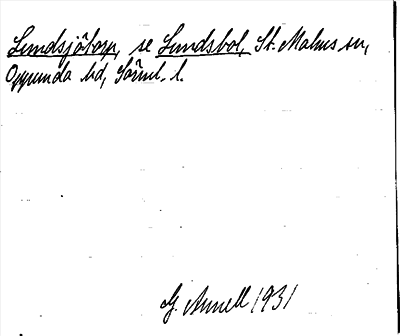 Lundsjötorp, se Lundsbol, St. Malms sn,
Oppunda hd, Sörml. l.
G. Annell 1931